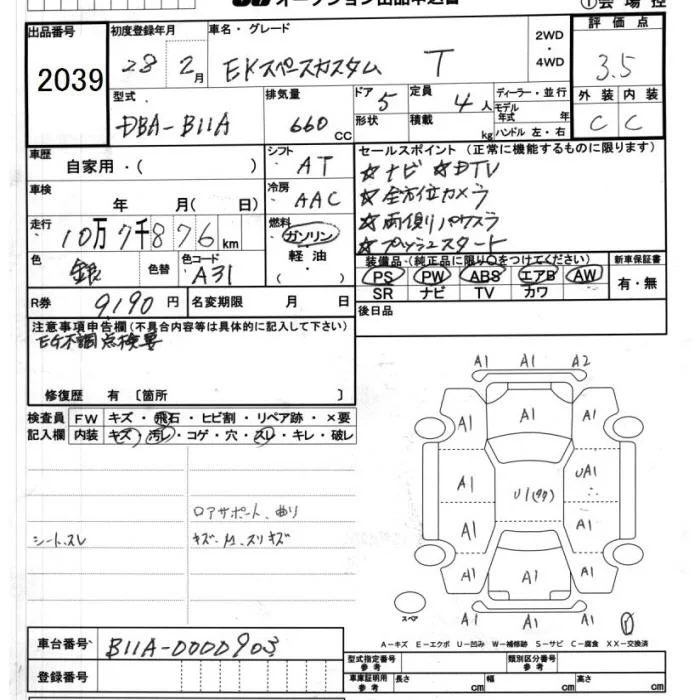 オークション出品申込書
①会場控
出品番号 2039
初度登録年月 28 2月
車名・グレード EKスペースカスタム T
2WD・4WD
評価点 3.5
型式 DBA-B11A
排気量 660 CC
ドア 5 形状
定員 4人 積載 kg
ディーラー・並行
モデル年式 年
ハンドル 左・右
外装 C 内装 C
車歴 自家用・( )
シフト AT
セールスポイント (正常に機能するものに限ります)
☆ナビ ☆DTV
☆全方位カメラ
☆両側パワスラ
☆プッシュスタート
車検 年 月( 日)
冷房 AAC
走行 10万7千876km
燃料 ガソリン・軽油・( )
色 銀 色替 色コード A31
装備品・(純正品に限り○をつけてください)
PS PW ABS エアB AW
SR ナビ TV カワ
新車保証書 有・無
R券 9,190円 名変期限 月 日
後日品
注意事項申告欄(不具合内容等は具体的に記入して下さい)
Eg不調点検要
修復歴 有〔箇所 〕
検査員記入欄
FW キズ・飛石・ヒビ割・リペア跡・×要
内装 キズ・汚レ・コゲ・穴・スレ・キレ・破レ
ロアサポート、曲り
シート、スレ
キズ・M、スリキズ
A1 A1 A2
A1 A1 A1
A1 U1 UA1
A1 A1
A1 A1 A1
スペア
A-キズ E-エクボ U-凹み W-補修跡 S-サビ C-腐食 XX-交換済
車台番号 B11A-0000903
登録番号
型式指定番号参考
類別区分番号参考
車庫証明用参考 長さ cm 幅 cm 高さ cm